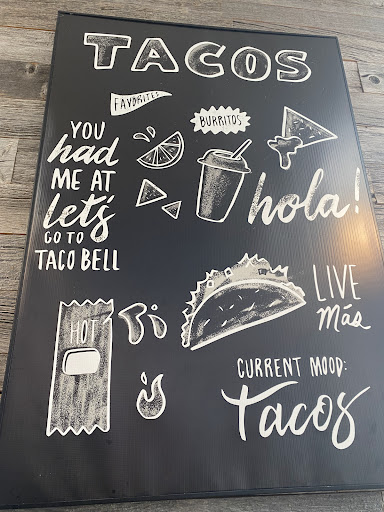 TACOS
FAVORITES
BURRITOS
YOU
had
ME AT
let's
GO TO
TACO BELL
hola!
HOT
LIVE
Más
CURRENT MOOD:
Tacos